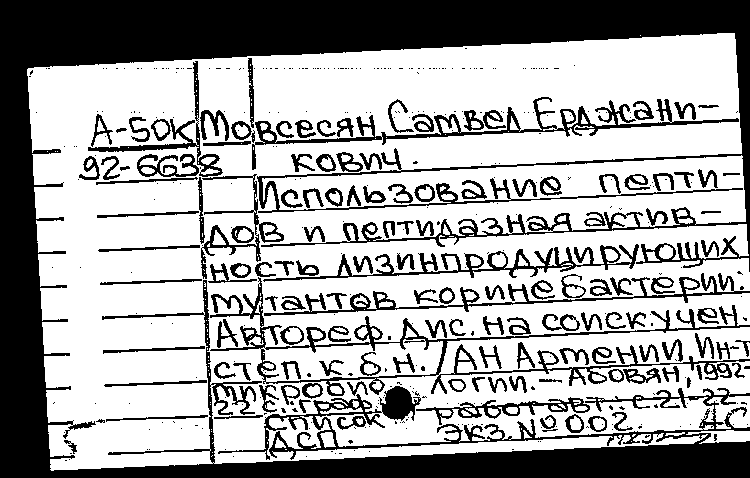 А-50к Мовсесян, Самвел Ерджани-
92-6638 кович.
Использование пепти-
дов и пептидазная актив-
ность лизинпродуцирующих
мутантов коринебактерий:
Автореф. дис. на соиск. учен.
степ. к. б. н. / АН Армении, Ин-т
микробиологии. — Абовян, 1992-
22 с.: граф.
Список работ авт.: с. 21-22.
ДСП. Экз. № 002. АС